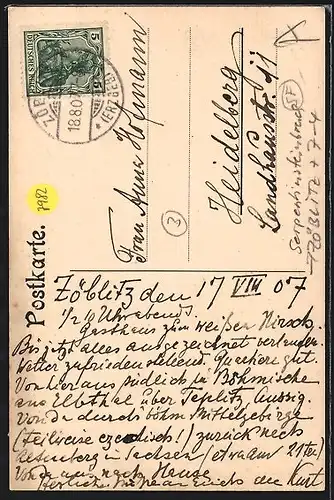 Postkarte.
5 5
DEUTSCHES REICH
ZÖBLITZ
18.8.07
(ERZGEB)
Frau Anna Hofmann
Heidelberg
Landhausstr. 11
3
7982
SF
Serpentinsteinbruch
ZÖBLITZ + 7-4
Zöblitz den 17 VIII 07
1/2 10 Uhr abends.
Gasthaus zum weißen Hirsch.
Bis jetzt alles ausgezeichnet verlaufen.
Wetter zufriedenstellend. Quartiere gut.
Von hier aus südlich in Böhmische
ans Elbthal über Teplitz, Aussig.
Von da durchs böhm Mittelgebirge
(teilweise czechisch!) zurück nach
Altenberg in Sachsen (etwa am 21ten)
Von da aus nach Hause.
Herzliche Grüße dir Kurt